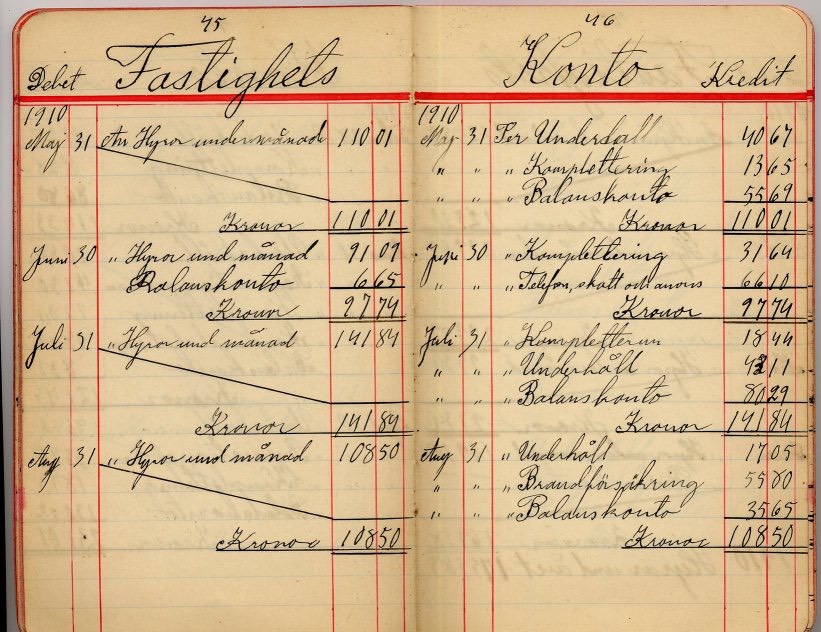 45
Debet Fastighets
1910
Maj 31 An Hyror under månad 110 01
Kronor 110 01
Juni 30 " Hyror und månad 91 09
Balanskonto 6 65
Kronor 97 74
Juli 31 " Hyror und månad 141 84
Kronor 141 84
Aug 31 " Hyror und månad 108 50
Kronor 108 50
46
Konto Kredit
1910
Maj 31 Per Underhåll 40 67
" " " Komplettering 13 65
" " " Balanskonto 55 69
Kronor 110 01
Juni 30 " Komplettering 31 64
" " " Telefon, skatt och anons 66 10
Kronor 97 74
Juli 31 " Komplettering 18 44
" " " Underhåll 43 11
" " " Balanskonto 80 29
Kronor 141 84
Aug 31 " Underhåll 17 05
" " " Brandförsäkring 55 80
" " " Balanskonto 35 65
Kronor 108 50